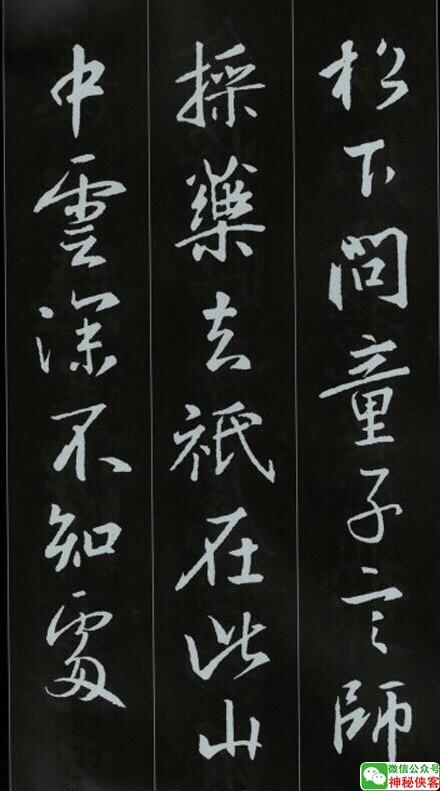 松下問童子言師
採藥去祇在此山
中雲深不知處
微信公众号
神秘侠客